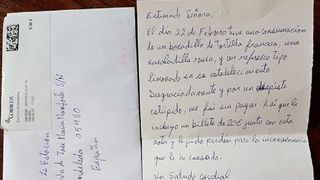 Estimado Señora,
El día 22 de Febrero tuve una consumación
de un bocadillo de Tortilla francesa, una
ensaladilla rusa, y un refresco tipo
limonada en su establecimiento.
Desgraciadamente y por un despiste
estúpido, me fui sin pagar. Así que le
incluyo un billete de 20€ junto con esta
nota y le pido perdón para la inconveniencia
que le he causado.
Un Saludo Cordial
Correos
La Estación
de Jose Maria
05480
España